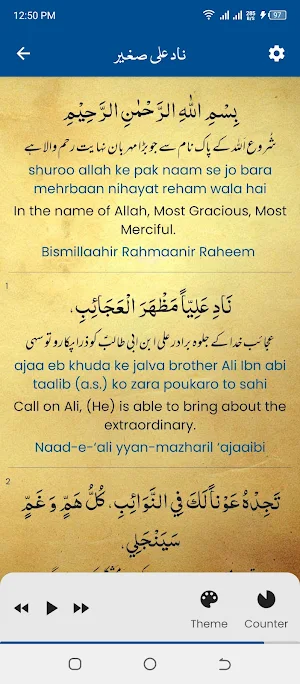 12:50 PM
285 B/s
97
ناد علی صغیر
بِسْمِ اللهِ الرَّحْمٰنِ الرَّحِيْمِ
شروع اللہ کے پاک نام سے جو بڑا مہربان نہایت رحم والا ہے
shuroo allah ke pak naam se jo bara
mehrbaan nihayat reham wala hai
In the name of Allah, Most Gracious, Most
Merciful.
Bismillaahir Rahmaanir Raheem
1
نَادِ عَلِيّاً مَظْهَرَ الْعَجَائِبِ،
عجائب خدا کے جلوہ برادر علی ابن ابی طالبؑ کو ذرا پکارو تو سہی
ajaa eb khuda ke jalva brother Ali Ibn abi
taalib (a.s.) ko zara poukaro to sahi
Call on Ali, (He) is able to bring about the
extraordinary.
Naad-e-‘ali yyan-mazharil ‘ajaaibi
2
تَجِدْهُ عَوْناً لَكَ فِي النَّوَائِبِ، كُلُّ هَمٍّ وَغَمٍّ
سَيَنْجَلِي،
Theme
Counter